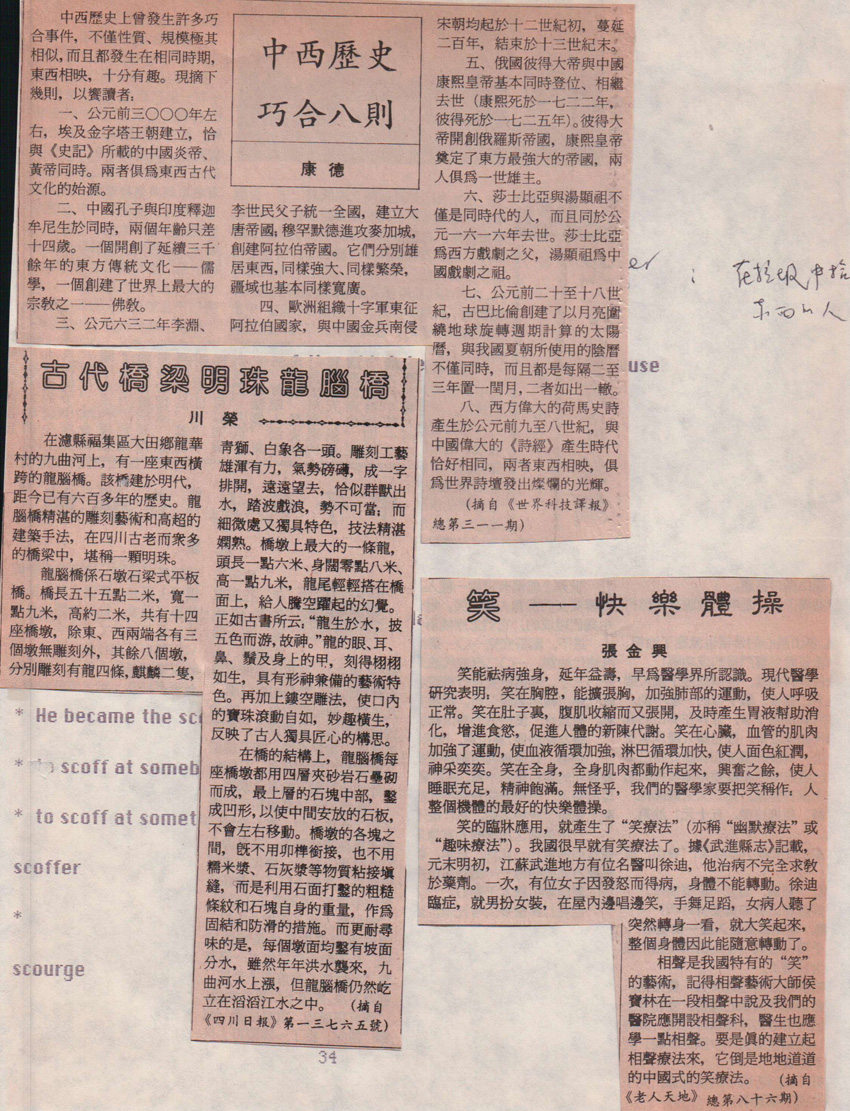 中西歷史
巧合八則
康德
中西歷史上曾發生許多巧
合事件，不僅性質、規模極其
相似，而且都發生在相同時期，
東西相映，十分有趣。現摘下
幾則，以饗讀者：
一、公元前三〇〇〇年左
右，埃及金字塔王朝建立，恰
與《史記》所載的中國炎帝、
黃帝同時。兩者俱爲東西古代
文化的始源。
二、中國孔子與印度釋迦
牟尼生於同時，兩個年齡只差
十四歲。一個開創了延續三千
餘年的東方傳統文化——儒
學，一個創建了世界上最大的
宗敎之一——佛敎。
三、公元六三二年李淵、
李世民父子統一全國，建立大
唐帝國；穆罕默德進攻麥加城，
創建阿拉伯帝國。它們分別雄
居東西，同樣強大、同樣繁榮，
疆域也基本同樣寬廣。
四、歐洲組織十字軍東征
阿拉伯國家，與中國金兵南侵
宋朝均起於十二世紀初，蔓延
二百年，結束於十三世紀末。
五、俄國彼得大帝與中國
康熙皇帝基本同時登位、相繼
去世（康熙死於一七二二年，
彼得死於一七二五年）。彼得大
帝開創俄羅斯帝國，康熙皇帝
奠定了東方最強大的帝國，兩
人俱爲一世雄主。
六、莎士比亞與湯顯祖不
僅是同時代的人，而且同於公
元一六一六年去世。莎士比亞
爲西方戲劇之父，湯顯祖爲中
國戲劇之祖。
七、公元前二十至十八世
紀，古巴比倫創建了以月亮圍
繞地球旋轉週期計算的太陽
曆，與我國夏朝所使用的陰曆
不僅同時，而且都是每隔二至
三年置一閏月，二者如出一轍。
八、西方偉大的荷馬史詩
產生於公元前九至八世紀，與
中國偉大的《詩經》產生時代
恰好相同，兩者東西相映，俱
爲世界詩壇發出燦爛的光輝。
（摘自《世界科技譯報》
總第三一一期）
er
：在垃圾中拾
東西的人
use
古代橋梁明珠龍腦橋
川榮
在瀘縣福集區大田鄉龍華
村的九曲河上，有一座東西橫
跨的龍腦橋。該橋建於明代，
距今已有六百多年的歷史。龍
腦橋精湛的雕刻藝術和高超的
建築手法，在四川古老而衆多
的橋梁中，堪稱一顆明珠。
龍腦橋係石墩石梁式平板
橋。橋長五十五點二米，寬一
點九米，高約二米，共有十四
座橋墩，除東、西兩端各有三
個墩無雕刻外，其餘八個墩，
分別雕刻有龍四條，麒麟二隻，
青獅、白象各一頭。雕刻工藝
雄渾有力，氣勢磅礡，成一字
排開，遠遠望去，恰似群獸出
水，踏波戲浪，勢不可當；而
細微處又獨具特色，技法精湛
嫻熟。橋墩上最大的一條龍，
頭長一點六米、身闊零點八米、
高一點九米，龍尾輕輕搭在橋
面上，給人騰空躍起的幻覺。
正如古書所云：“龍生於水，披
五色而游，故神。”龍的眼、耳、
鼻、鬚及身上的甲，刻得栩栩
如生，具有形神兼備的藝術特
色。再加上鏤空雕法，使口內
的寶珠滾動自如，妙趣橫生，
反映了古人獨具匠心的構思。
在橋的結構上，龍腦橋每
座橋墩都用四層夾砂岩石壘砌
而成，最上層的石塊中部，鑿
成凹形，以使中間安放的石板，
不會左右移動。橋墩的各塊之
間，旣不用卯榫銜接，也不用
糯米漿、石灰漿等物質粘接塡
縫，而是利用石面打鑿的粗糙
條紋和石塊自身的重量，作爲
固結和防滑的措施。而更耐尋
味的是，每個墩面均鑿有坡面
分水，雖然年年洪水襲來，九
曲河水上漲，但龍腦橋仍然屹
立在滔滔江水之中。（摘自
《四川日報》第一三七六五號）
笑——快樂體操
張金興
笑能祛病強身，延年益壽，早爲醫學界所認識。現代醫學
研究表明，笑在胸腔，能擴張胸，加強肺部的運動，使人呼吸
正常。笑在肚子裏，腹肌收縮而又張開，及時產生胃液幫助消
化，增進食慾，促進人體的新陳代謝。笑在心臟，血管的肌肉
加強了運動，使血液循環加強，淋巴循環加快，使人面色紅潤，
神采奕奕。笑在全身，全身肌肉都動作起來，興奮之餘，使人
睡眠充足，精神飽滿。無怪乎，我們的醫學家要把笑稱作：人
整個機體的最好的快樂體操。
笑的臨牀應用，就產生了“笑療法”（亦稱“幽默療法”或
“趣味療法”）。我國很早就有笑療法了。據《武進縣志》記載，
元末明初，江蘇武進地方有位名醫叫徐迪，他治病不完全求敎
於藥劑。一次，有位女子因發怒而得病，身體不能轉動。徐迪
臨症，就男扮女裝，在屋內邊唱邊笑，手舞足蹈，女病人聽了
突然轉身一看，就大笑起來，
整個身體因此能隨意轉動了。
相聲是我國特有的“笑”
的藝術，記得相聲藝術大師侯
寶林在一段相聲中說及我們的
醫院應開設相聲科，醫生也應
學一點相聲。要是眞的建立起
相聲療法來，它倒是地地道道
的中國式的笑療法。（摘自
《老人天地》總第八十六期）
* He became the sco
* to scoff at someb
* to scoff at somet
scoffer
*
scourge
34